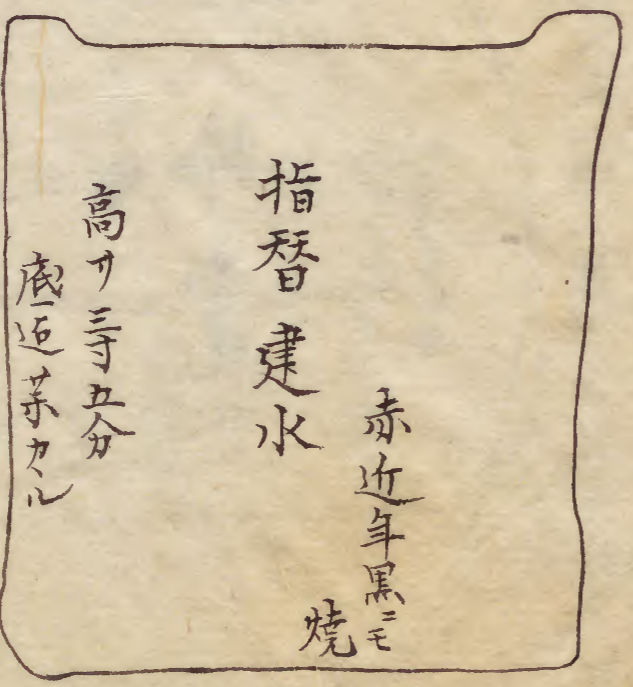 赤近年黒ニモ
焼
指替建水
高サ三寸五分
底迄薬カヽル